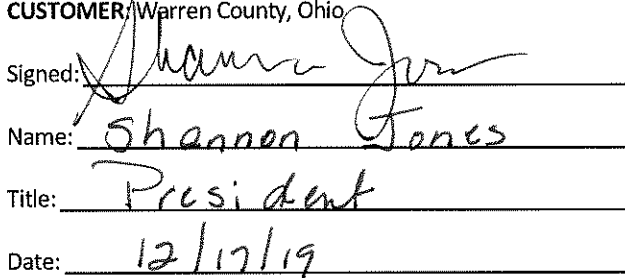 CUSTOMER: Warren County, Ohio
Signed: Shannon Jones
Name: Shannon Jones
Title: President
Date: 12/17/19